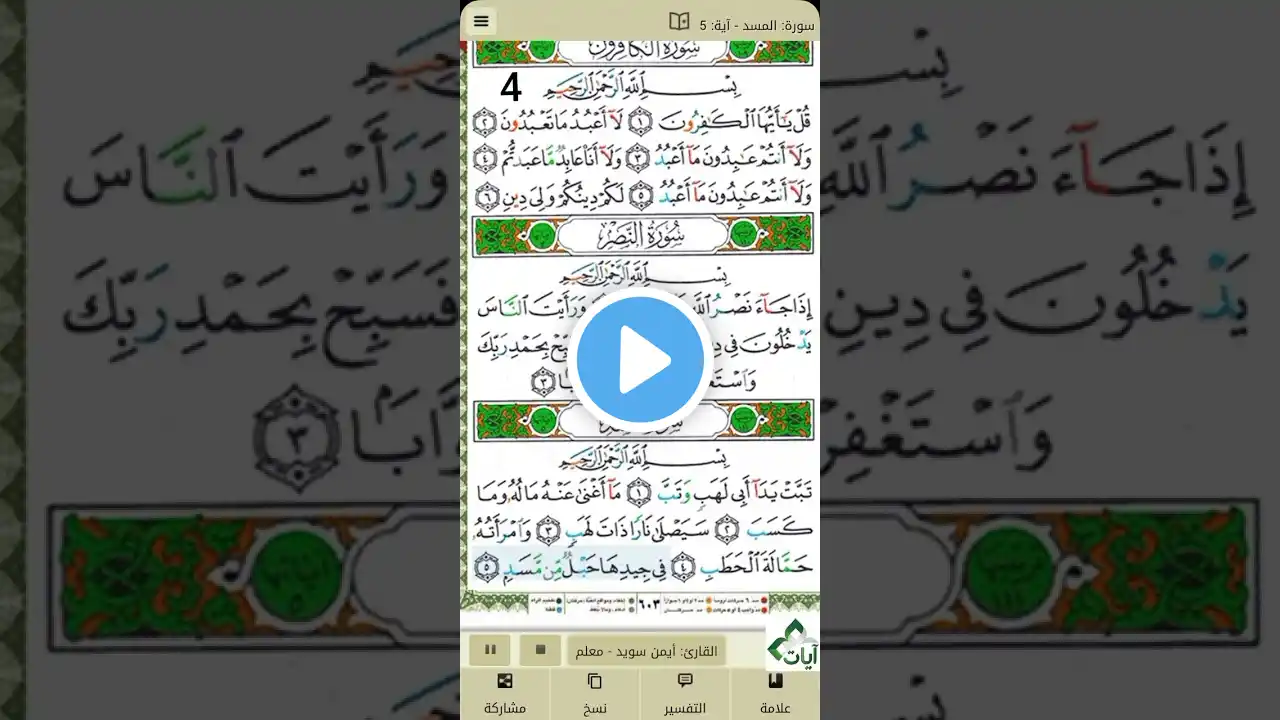 سورة: المسد - آية: 5
سُورَةُ الْكَافِرُونَ
4
بِسْمِ اللَّهِ الرَّحْمَٰنِ الرَّحِيمِ
قُلْ يَٰٓأَيُّهَا الْكَٰفِرُونَ ١ لَآ أَعْبُدُ مَا تَعْبُدُونَ ٢
وَلَآ أَنتُمْ عَٰبِدُونَ مَآ أَعْبُدُ ٣ وَلَآ أَنَا۠ عَابِدٌ مَّا عَبَدتُّمْ ٤
وَلَآ أَنتُمْ عَٰبِدُونَ مَآ أَعْبُدُ ٥ لَكُمْ دِينُكُمْ وَلِىَ دِينِ ٦
سُورَةُ النَّصْرِ
بِسْمِ اللَّهِ الرَّحْمَٰنِ الرَّحِيمِ
إِذَا جَآءَ نَصْرُ اللَّهِ وَرَأَيْتَ النَّاسَ
يَدْخُلُونَ فِى دِينِ فَسَبِّحْ بِحَمْدِ رَبِّكَ
وَاسْتَغْفِرْ ٣
بِسْمِ اللَّهِ الرَّحْمَٰنِ الرَّحِيمِ
تَبَّتْ يَدَآ أَبِى لَهَبٍ وَتَبَّ ١ مَآ أَغْنَىٰ عَنْهُ مَالُهُۥ وَمَا
كَسَبَ ٢ سَيَصْلَىٰ نَارًا ذَاتَ لَهَبٍ ٣ وَامْرَأَتُهُۥ
حَمَّالَةَ الْحَطَبِ ٤ فِى جِيدِهَا حَبْلٌ مِّن مَّسَدٍۭ ٥
٦٠٣
القارئ: أيمن سويد - معلم
آيات
علامة
التفسير
نسخ
مشاركة